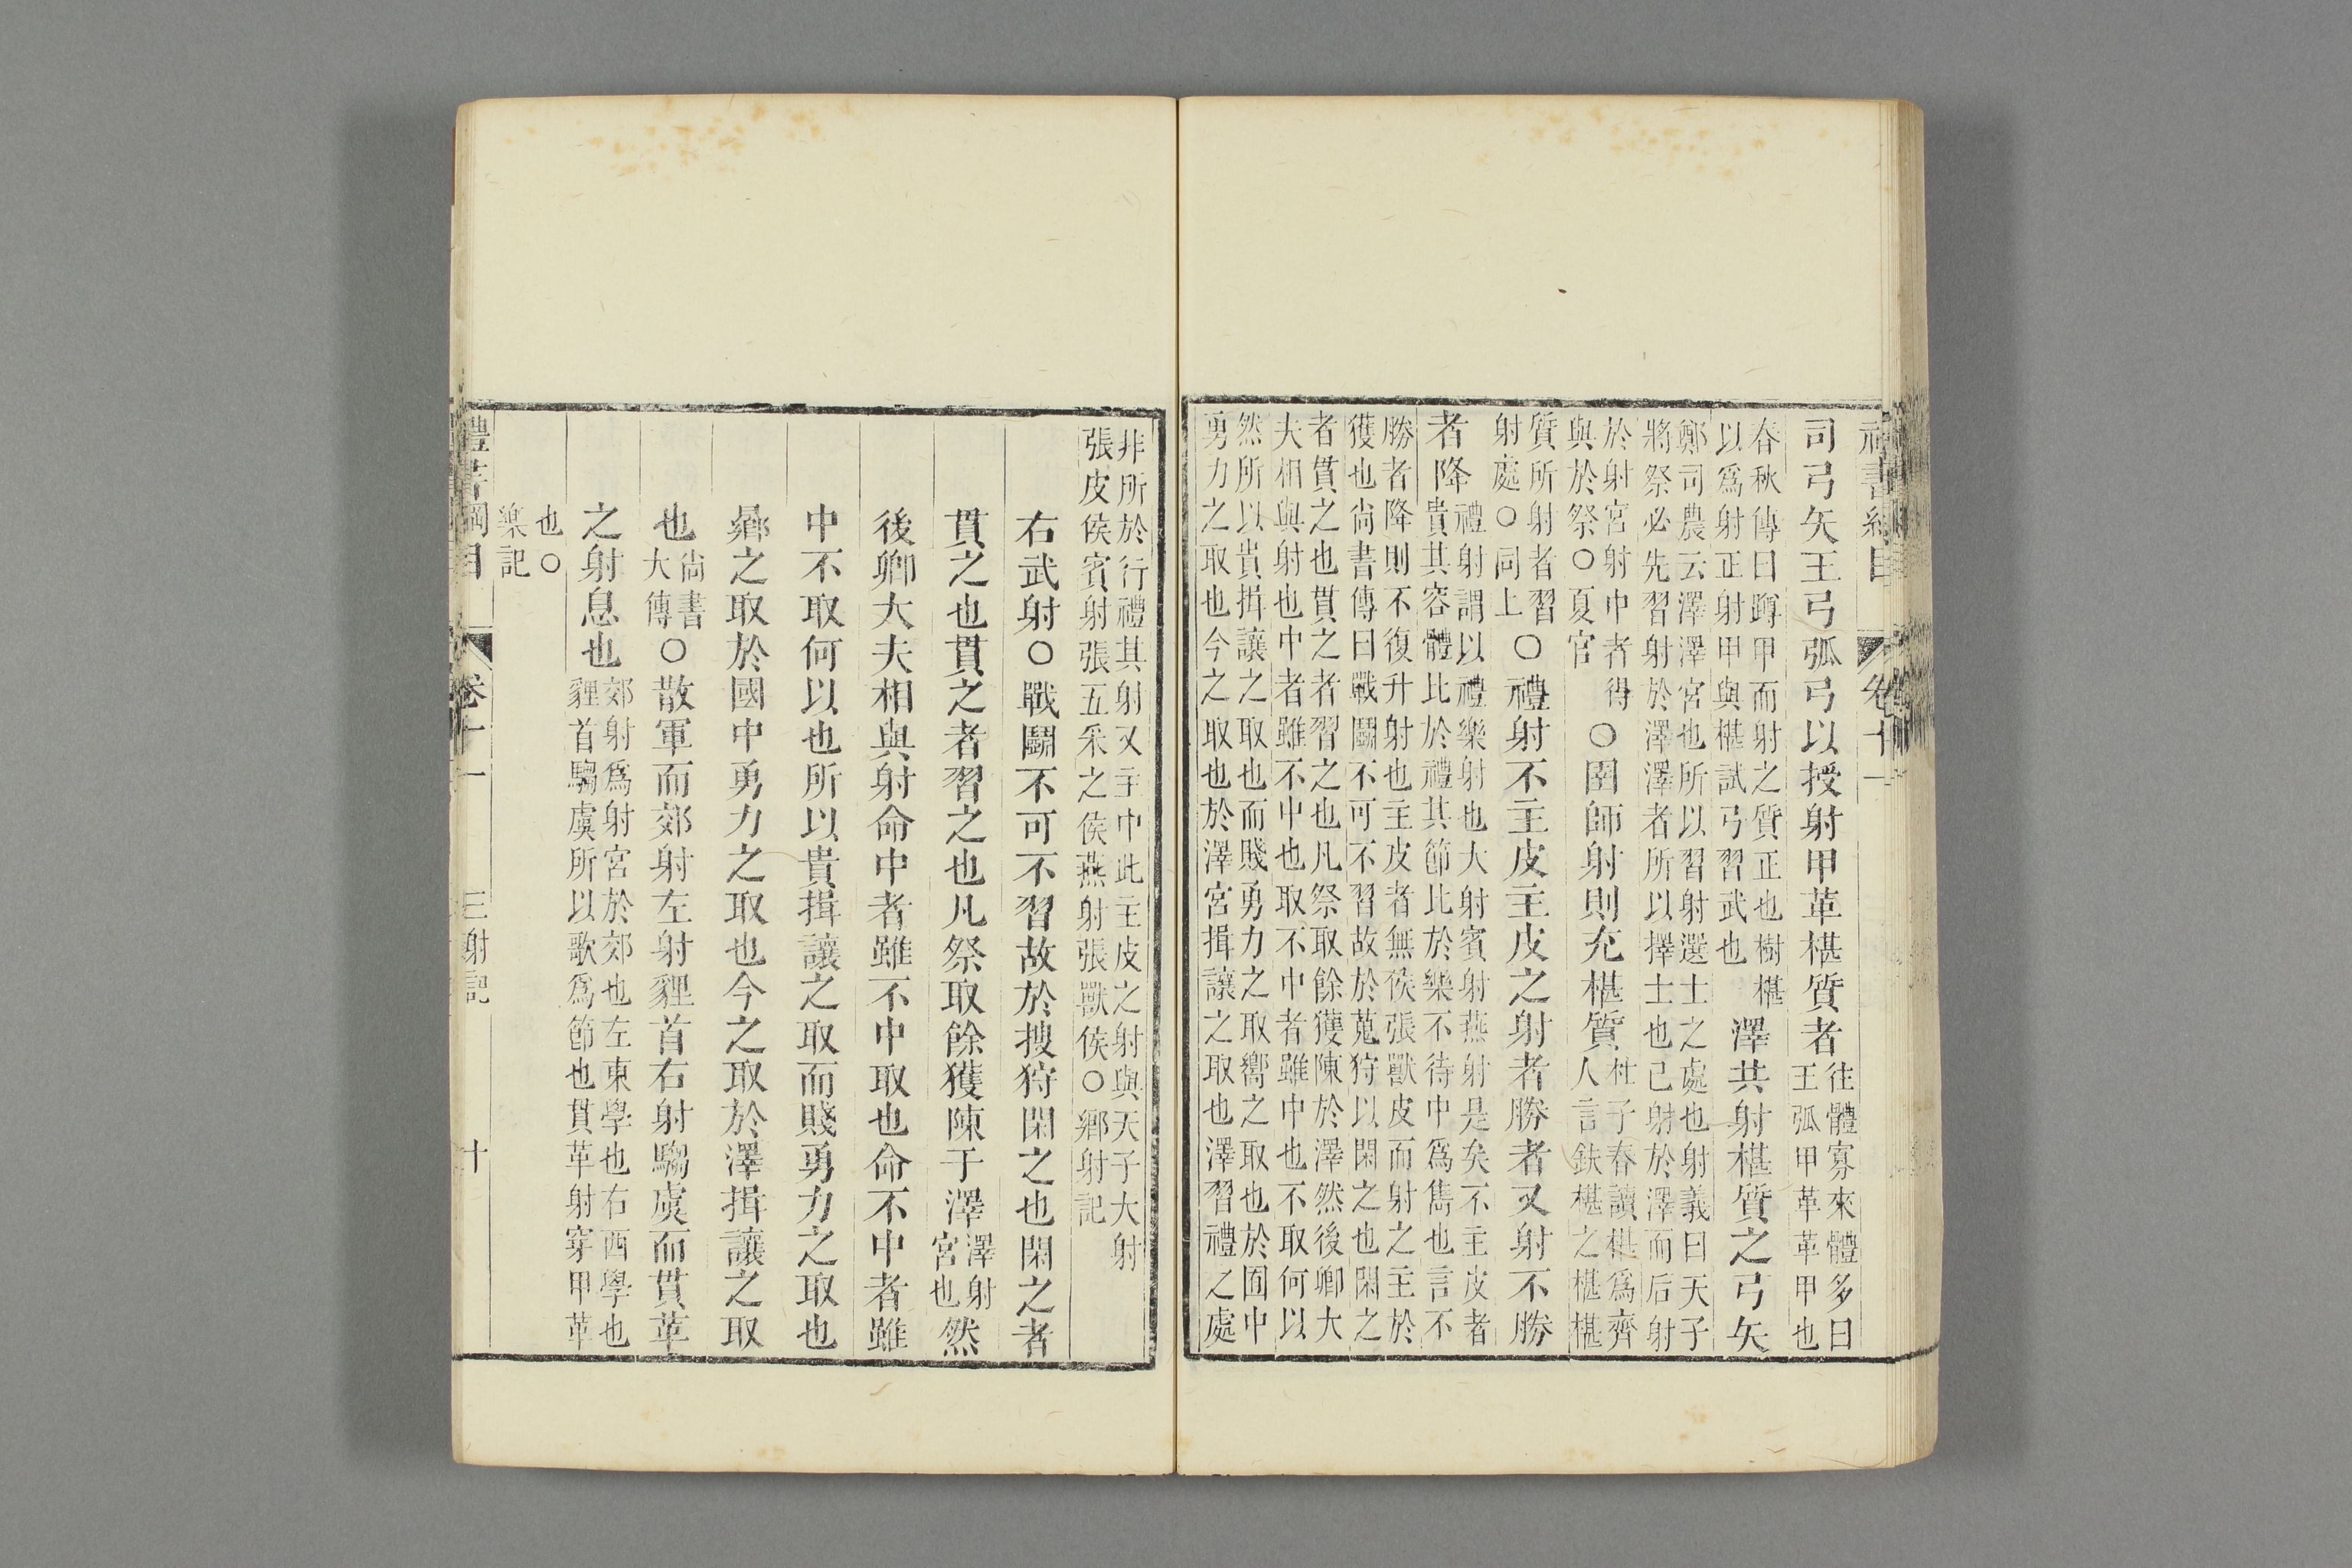 禮書綱目 卷十一
司弓矢王弓弧弓以授射甲革椹質者往體寡來體多曰
王弧甲革革甲也
春秋傳曰蹲甲而射之質正也樹椹
以爲射正射甲與椹試弓習武也澤共射椹質之弓矢
鄭司農云澤澤宮也所以習射選士之處也射義曰天子
將祭必先習射於澤澤者所以擇士也已射於澤而后射
於射宮射中者得
與於祭○夏官○圉師射則充椹質杜子春讀椹爲齊
人言鈇椹之椹椹
質所射者習
射處○同上○禮射不主皮主皮之射者勝者又射不勝
者降禮射謂以禮樂射也大射賓射燕射是矣不主皮者
貴其容體比於禮其節比於樂不待中爲雋也言不
勝者降則不復升射也主皮者無侯張獸皮而射之主於
獲也尙書傳曰戰鬭不可不習故於蒐狩以閑之也閑之
者貫之也貫之者習之也凡祭取餘獲陳於澤然後卿大
夫相與射也中者雖不中也取不中者雖中也不取何以
然所以貴揖讓之取也而賤勇力之取嚮之取也於囿中
勇力之取也今之取也於澤宮揖讓之取也澤習禮之處
非所於行禮其射又主中此主皮之射與天子大射
張皮侯賓射張五采之侯燕射張獸侯○鄉射記
右武射○戰鬭不可不習故於搜狩閑之也閑之者
貫之也貫之者習之也凡祭取餘獲陳于澤澤射
宮也然
後卿大夫相與射命中者雖不中取也命不中者雖
中不取何以也所以貴揖讓之取而賤勇力之取也
曏之取於國中勇力之取也今之取於澤揖讓之取
也尙書
大傳○散軍而郊射左射貍首右射騶虞而貫革
之射息也郊射爲射宮於郊也左東學也右西學也
貍首騶虞所以歌爲節也貫革射穿甲革
也○
樂記
禮書綱目 卷十一 三射記 十